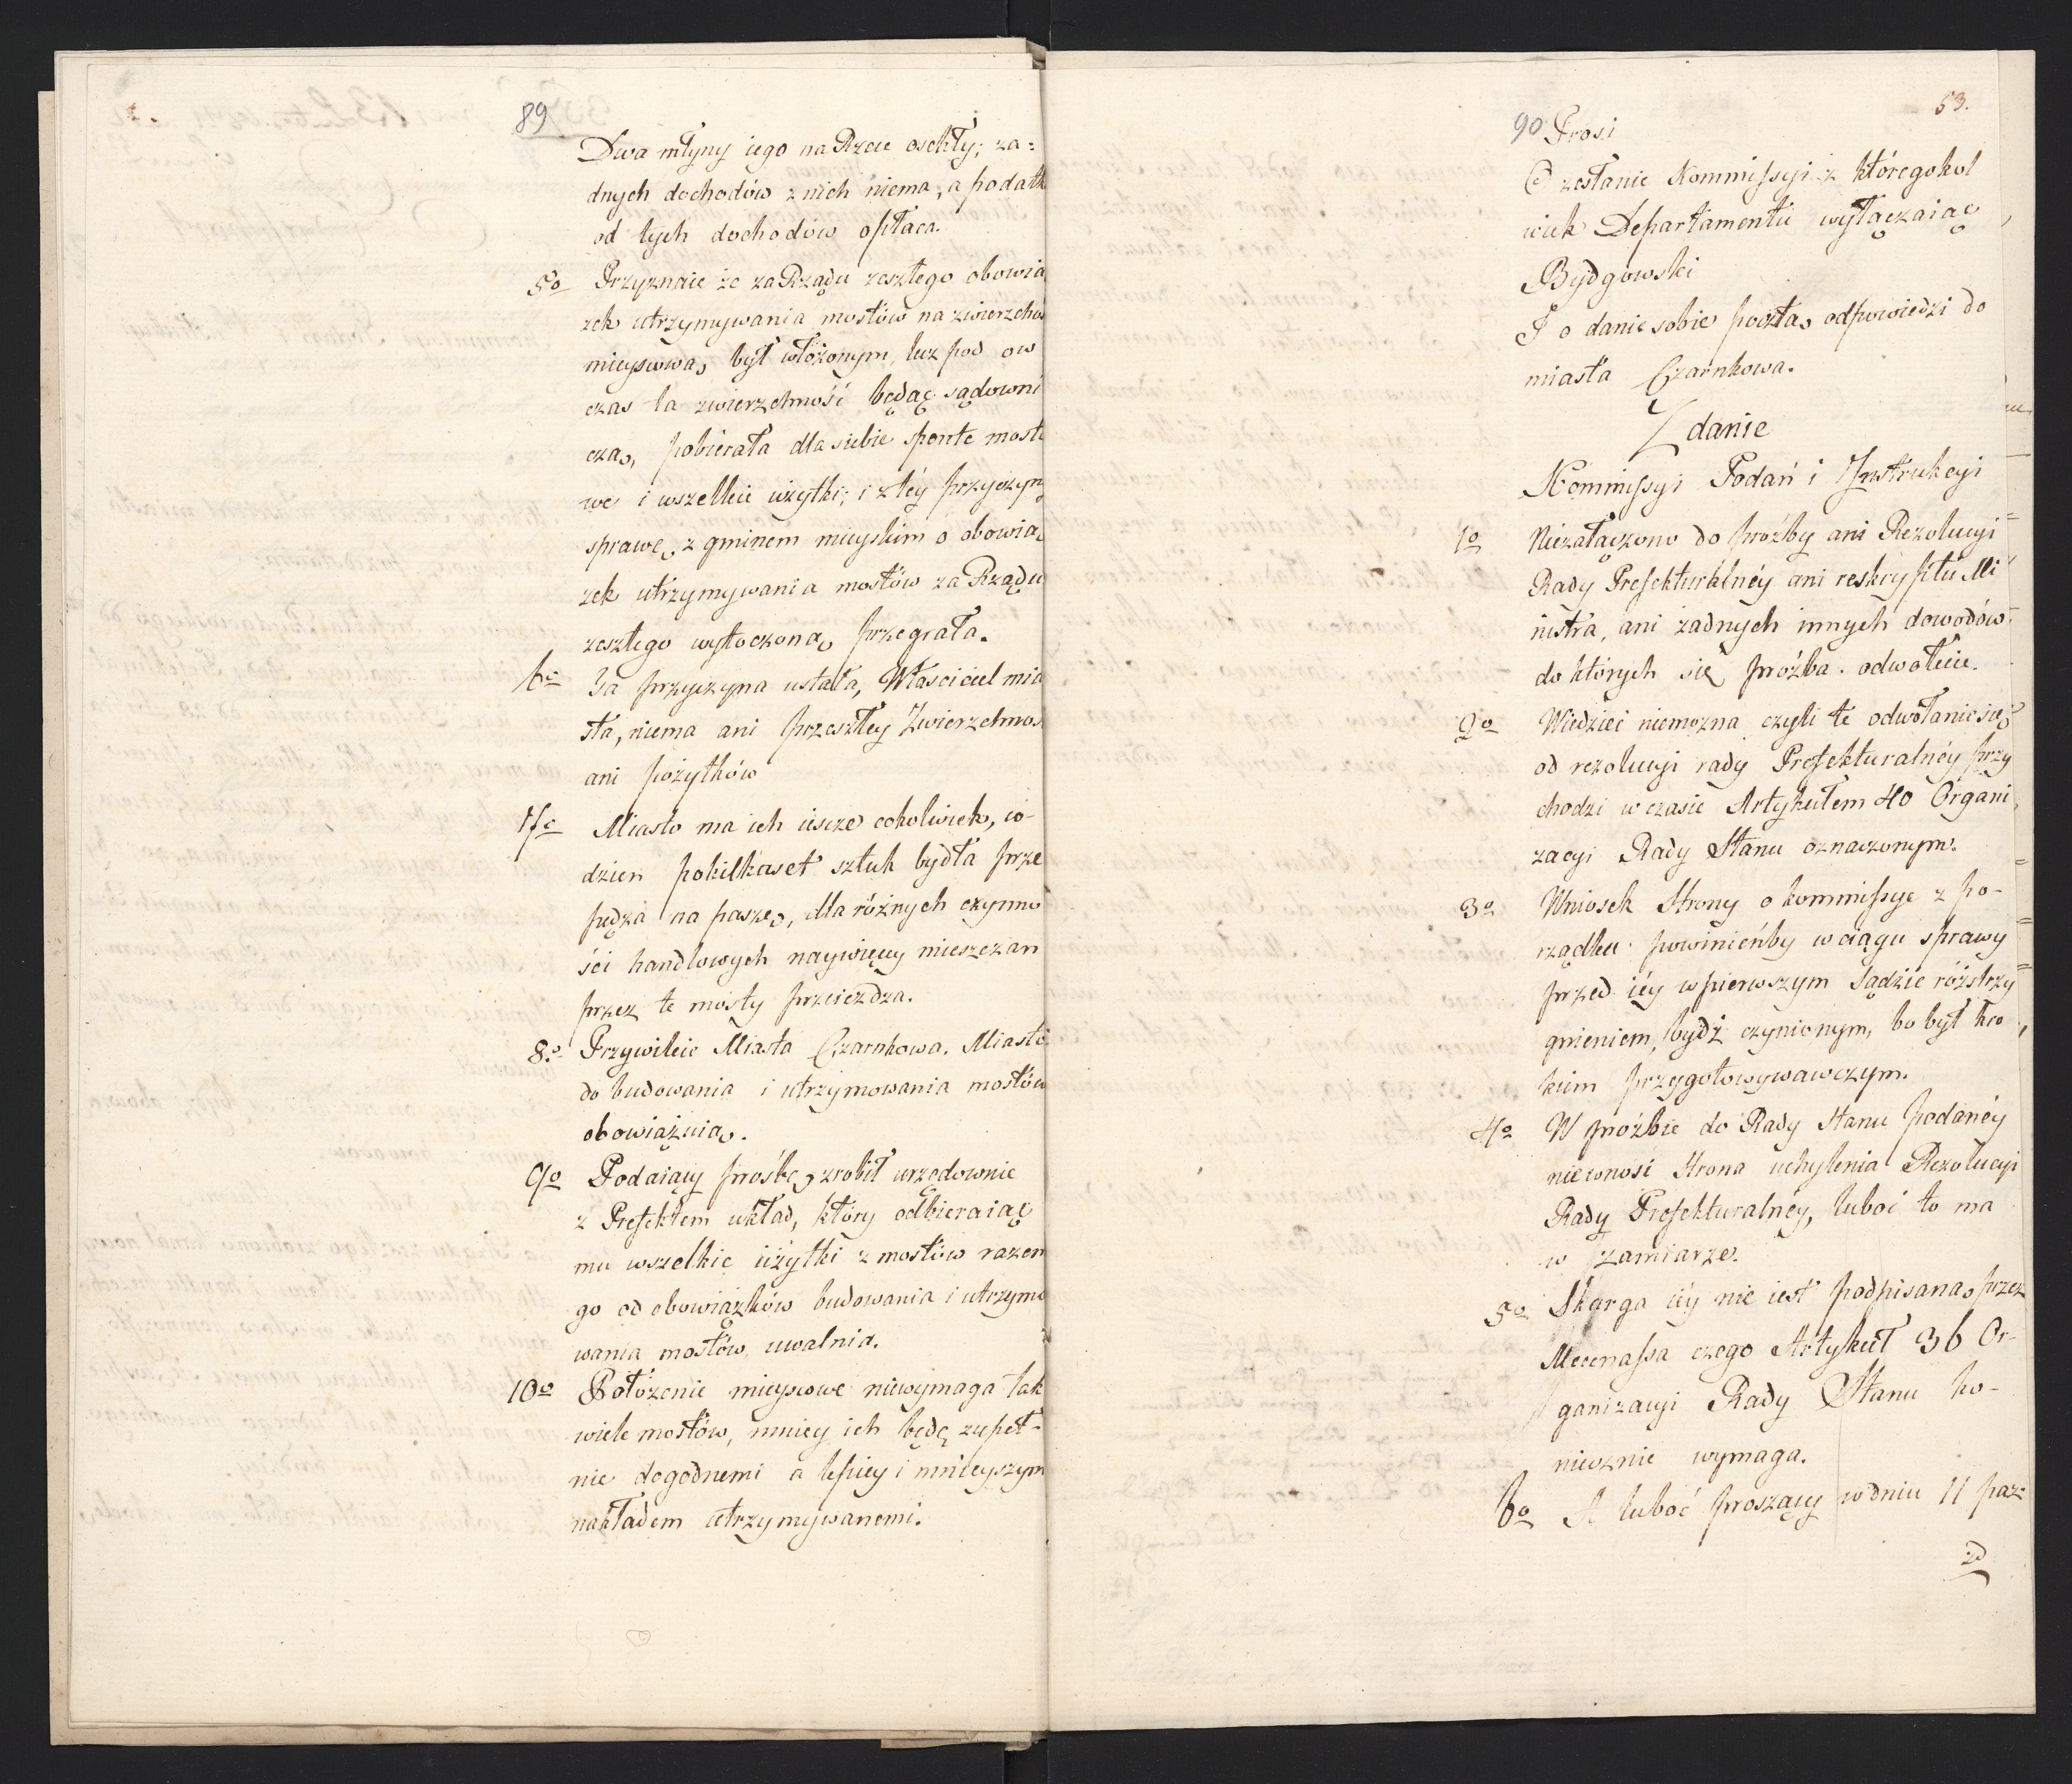 89
Dwa młyny iego na Rzece oschły; za=
dnych dochodów z nich niema, a podatk
od tych dochodów opłaca.
5o Przyznaie że za Rządu zeszłego obowią
zek utrzymywania mostów na zwierzchn
mieyscową był włożonym, lecz pod ow
czas ta zwierzchność będąc sądowni
czą, pobierała dla siebie sponte mosto
we i wszelkie użytki; i z téy przyczyn
sprawę z gminem mieyskim o obowią
zek utrzymywania mostów za Rządu
zeszłego wytoczoną przegrała.
6o Ta przyczyna ustała, Właściciel mia
sta, niema ani przeszłey Zwierzchnoś
ani pożytków
7o Miasto ma ich ieszcze cokolwiek, co-
dzien pokilkaset sztuk bydła prze
pędza na paszę, dla różnych czynno
ści handlowych naywięcy mieszczan
przez te mosty przeiezdza.
8o Przywileie Miasta Czarnkowa. Miasto
do budowania i utrzymowania mostów
obowiązuią.
9o Podaiący prośbę zrobił urzędownie
z Prefektem układ, który odbieraiąc
mu wszelkie użytki z mostów razem
go od obowiązków budowania i utrzymy
wania mostów uwalnia.
10o Położenie mieyscowe niewymaga tak
wiele mostów, mniey ich będą zupeł-
nie dogodnemi a lepiey i mnieyszym
nakładem utrzymywanemi.
53.
90 Prosi
O zesłanie Kommissyi z któregokol
wiek Departamentu wyłączaiąc
Bydgowski
I o danie sobie pocztą odpowiedzi do
miasta Czarnkowa.
Zdanie
Kommissyi Podań i Instrukcyi
1o Niezałączono do prożby ani Rezolucyi
Rady Prefekturalnéy ani reskryptu Mi
nistra, ani żadnych innych dowodów
do których się prożba odwołuie.
2o Wiedzieć niemożna czyli te odwołanie się
od rezolucyi rady Prefekturalnéy przy
chodzi w czasie Artykułem 40 Organi
zacyi Rady Stanu oznaczonym.
3o Wniosek Strony o kommissyę z po-
rządku powinienby w ciągu sprawy
przed iéy w pierwszym Sądzie rózstrzy
gnieniem, bydź czynionym, bo był kro
kiem przygotowywawczym.
4o W prożbie do Rady Stanu podanéy
niewnosi Strona uchylenia Rezolucyi
Rady Prefekturalnéy, luboć to ma
w zamiarze.
5o Skarga iéy nie iest podpisaną przez
Mecenassa czego Artykuł 36 Or-
ganizacyi Rady Stanu ko-
niecznie wymaga.
6o A luboć proszący w dniu 11 paz=